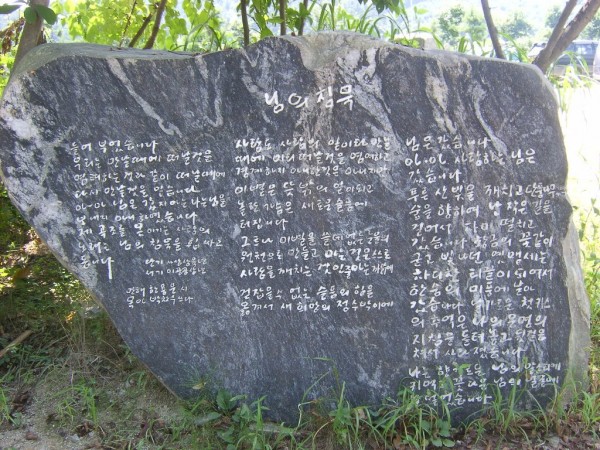 님의 침묵
님은 갔습니다
아 아 사랑하는 님은
갔습니다
푸른 산 빛을 깨치고 단풍나무
숲을 향하여 난 적은 길을
걸어서 차마 떨치고
갔습니다 황금의 꽃같이
굳고 빛나던 옛 맹세는
차디찬 티끌이 되어서
한숨의 미풍에 날아
갔습니다 날카로운 첫키스
의 추억은 나의 운명의
지침을 돌려 놓고 뒷걸음
쳐서 사라졌습니다
나는 향기로운 님의 말소리에
귀먹고 꽃다운 님의 얼굴에
눈멀었습니다
사랑도 사람의 일이라 만날
때에 미리 떠날것을 염려하고
경계하지 아니한것은 아니지만
이별은 뜻 밖의 일이되고
놀란 가슴은 새로운 슬픔에
터집니다
그러나 이별을 쓸데 없는 눈물의
원천으로 만들고 마는것은 스스로
사랑을 깨치는 것인줄 아는 까닭에
걷잡을수 없는 슬픔의 힘을
옮겨서 새 희망의 정수박이에
들어 부었습니다
우리는 만날때에 떠날것을
염려하는 것과 같이 떠날때에
다시 만날것을 믿습니다
아 아 님은 갔지마는 나는 님을
보내지 아니 하였습니다
제 곡조를 못 이기는 사랑의
노래는 님의 침묵을 휩싸고
돕니다
단기
서기
만해 한용운 시
쓰다